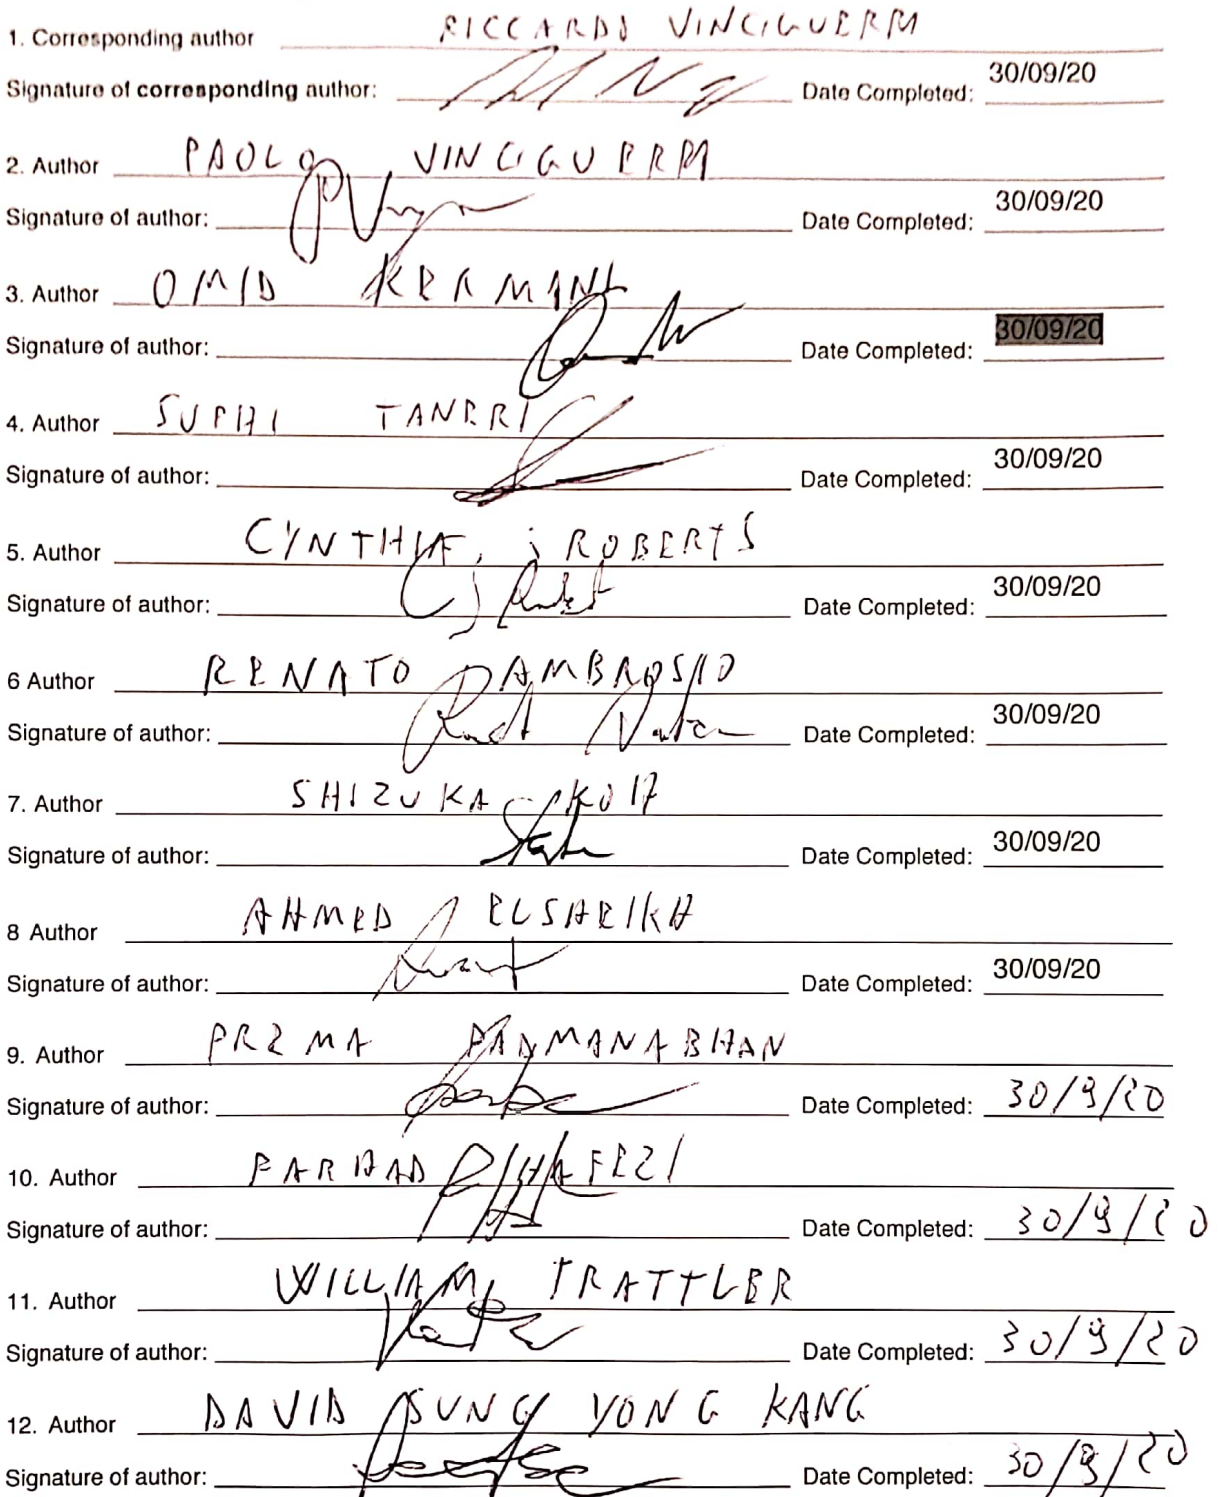 1. Corresponding author RICCARDO VINCIGUERRA
Signature of corresponding author: Date Completed: 30/09/20
2. Author PAOLO VINCIGUERRA
Signature of author: Date Completed: 30/09/20
3. Author OMID KERMANI
Signature of author: Date Completed: 30/09/20
4. Author SUPHI TANERI
Signature of author: Date Completed: 30/09/20
5. Author CYNTHIA, j ROBERTS
Signature of author: Date Completed: 30/09/20
6 Author RENATO DAMBROSIO
Signature of author: Date Completed: 30/09/20
7. Author SHIZUKA KOH
Signature of author: Date Completed: 30/09/20
8 Author AHMED ELSHEIKH
Signature of author: Date Completed: 30/09/20
9. Author PREMA PADMANABHAN
Signature of author: Date Completed: 30/9/20
10. Author FARHAD HAFEZI
Signature of author: Date Completed: 30/9/20
11. Author WILLIAM TRATTLER
Signature of author: Date Completed: 30/9/20
12. Author DAVID SUNG YONG KANG
Signature of author: Date Completed: 30/9/20